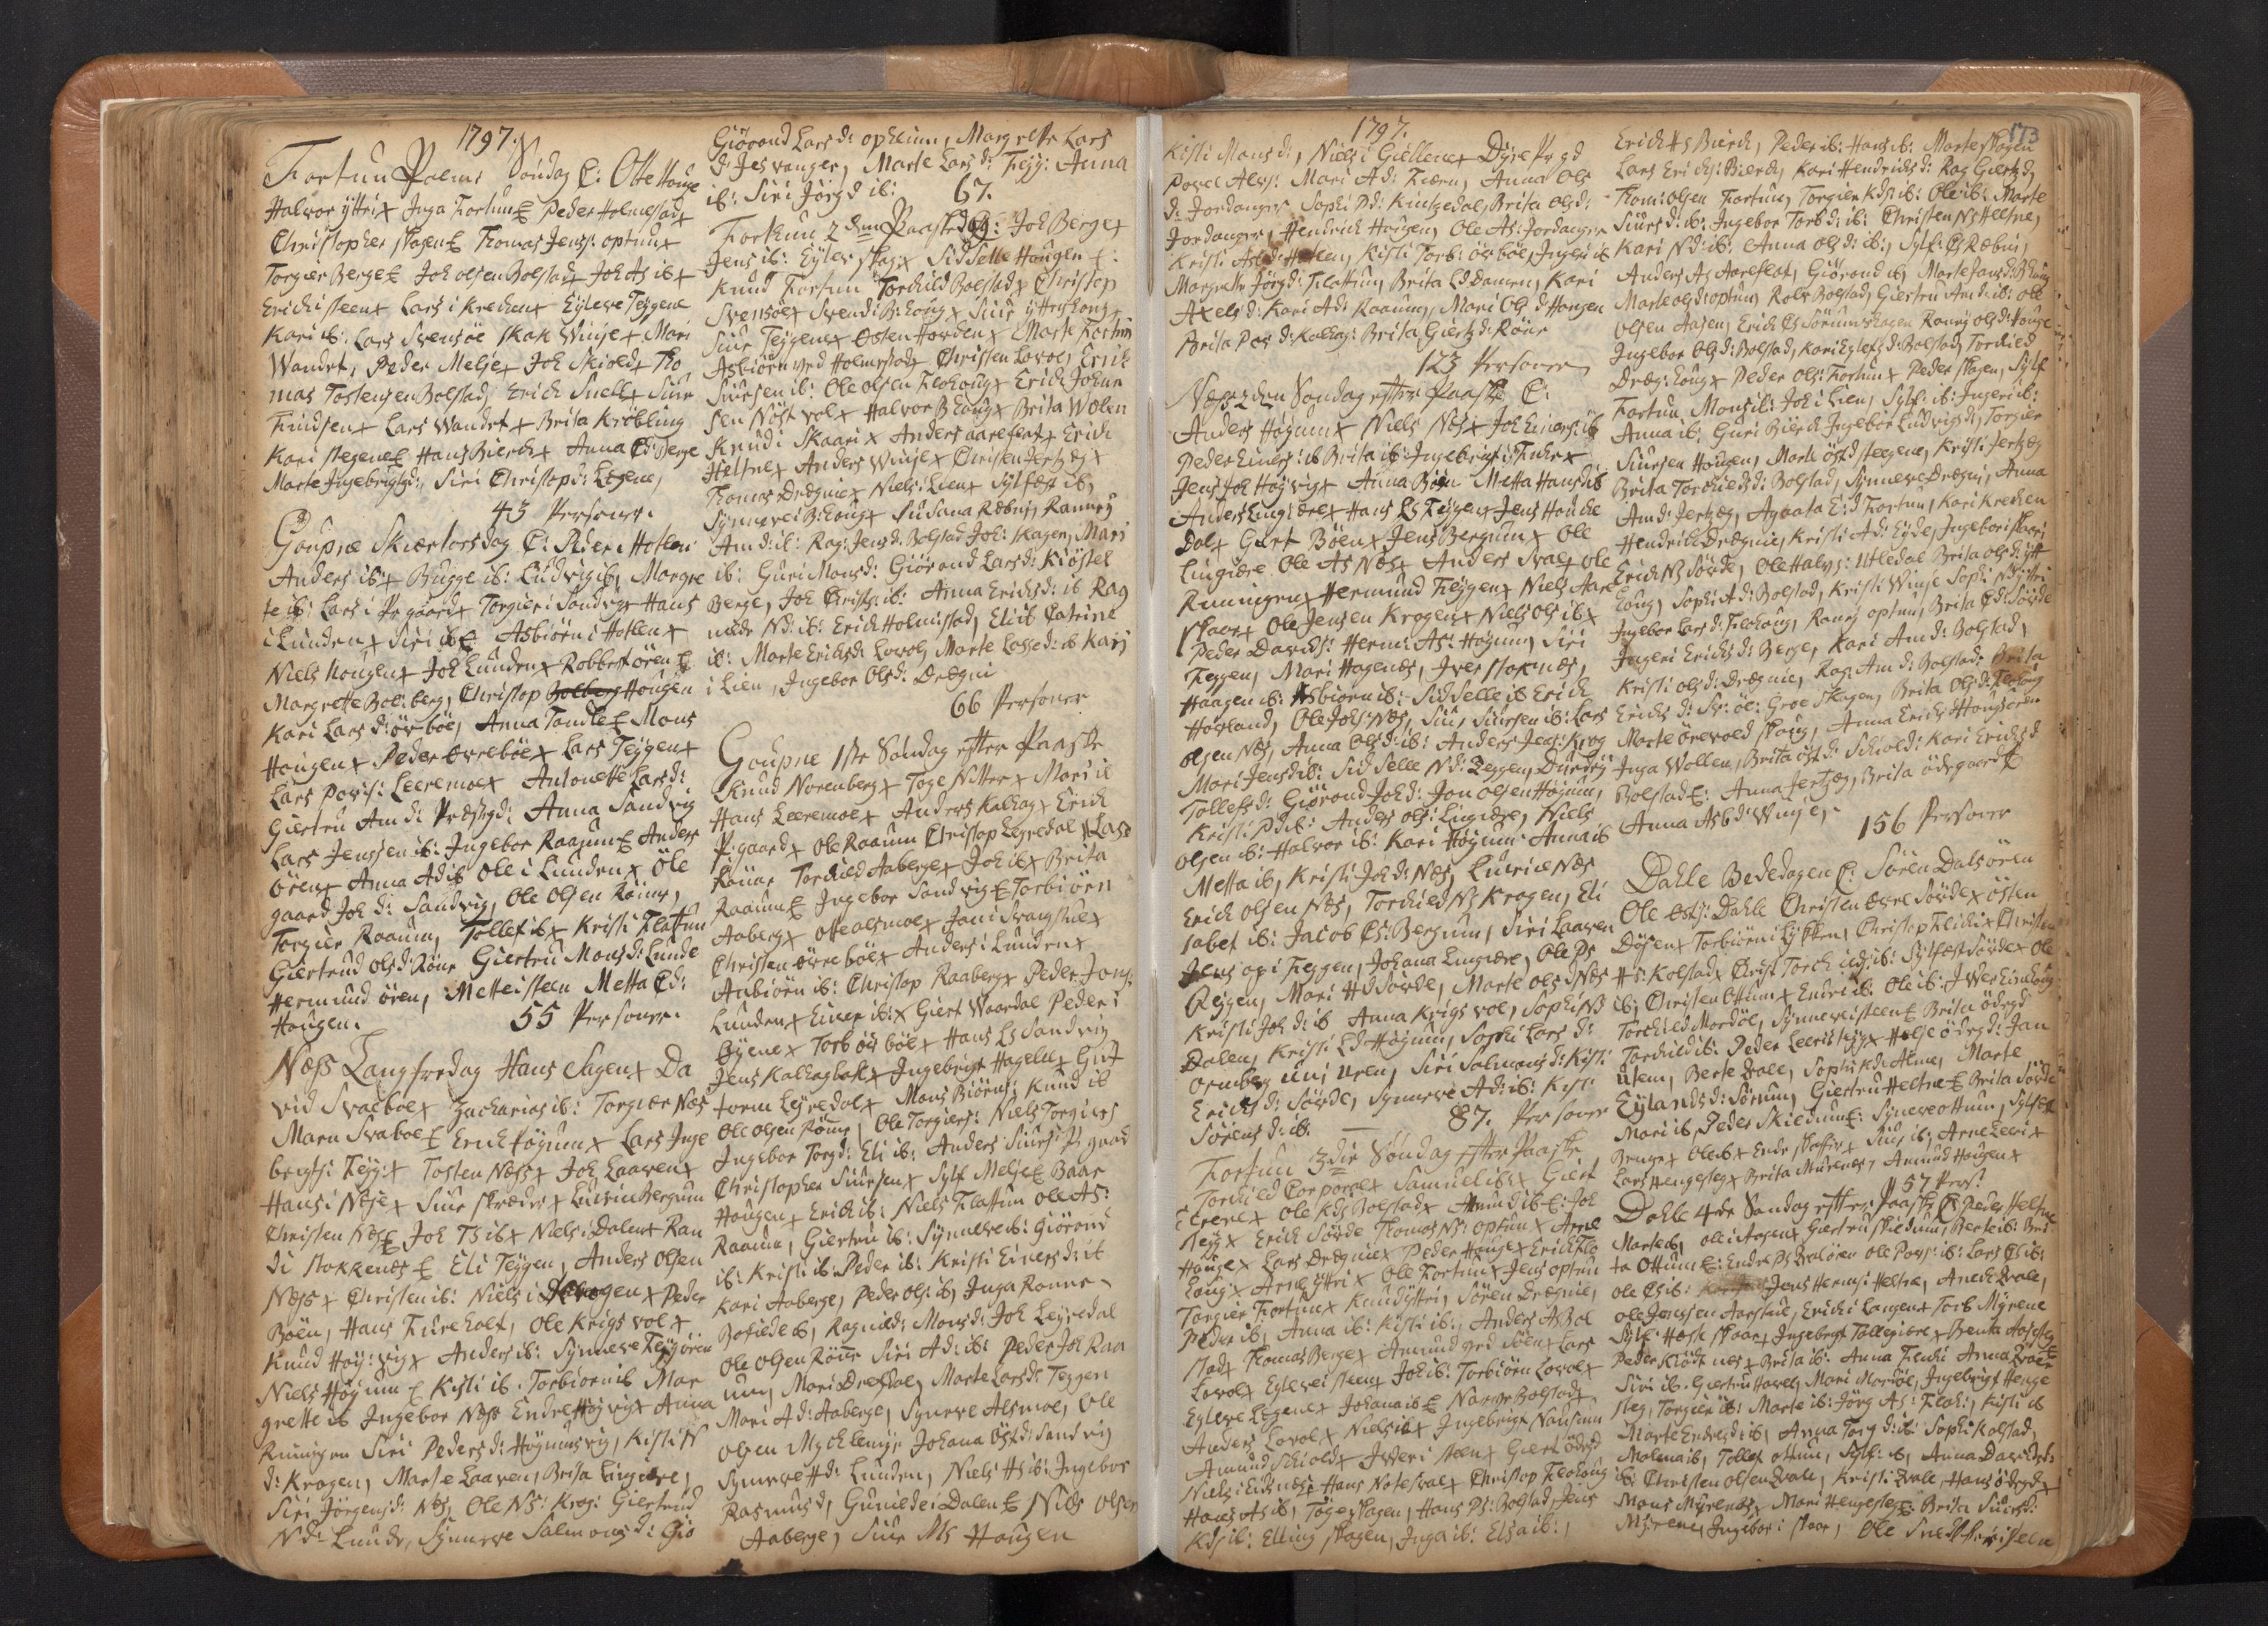 1797.
Fortun Palme Søndag C: Ole Houge
Halvor yttri x Inga Fortun E Peder Holmestad x
Christopher Skagen E Thomas Jenss: optun x
Torgier Berge E Joh olsen Bolstad x Joh As ib x
Erich i steen x Lars i Krechen x Eyleve Teygene
Kari ib: Lars Svensøe Skak Winje x Mari
Wandet, Peder Melje x Joh Skiold x Tho
mas Tostensen Bolstad, Erich Snell x Siur
Knudsen x Lars Wandet x Brita Krøbling
Kari stegene E Hans Bierch x Anna Ed: Berge
Marte Ingebrigtsd:, Siri Christopd: Legene,
43 Persone.
Goupne Skiertorsdag C: Peder i Hollen
Anders ib: x Bugge ib: Ludvig ib, Margre
te ib: Lars i Pr gaard x Torgier i Sandvig x Hans
i Lunden x Siri ib E Asbiørn i Hollen x
Niels Hougen x Joh Lunden x Robbestøren E
Margrette Bolsberg, Christop Hougen
Kari Lars d: ørebøe, Anna Tandle E Mons
Hougen x Peder Øvrebøe x Lars Teygen x
Lars Povls: Leeremoe x Antonette Lars d:
Giertru Am d: Præstgd: Anna Sandvig
Lars Jenssen ib: Ingebor Raaum E Anders
ören x Anna Ad ib Ole i Lunden x Ole
gaard Joh d: Sandvig, Ole Olsen Røner,
Torgier Raaum, Tollef ib x Kristi Flattun
Giertrud ols d: Røner Giertru Mons d: Lunde
Hermund ören, Mette i steen Metta Ed:
Hougen. 55 Persone.
Næss Langfredag Hans Sagen x Da
vid Svaboe x Zacharias ib: Torgier Næs
Maru Svaboe E Erich Høyum x Lars Inge
brigts: Teyg: x Tosten Næss x Joh Laaren x
Hans i Nese x Siur skræder x Luirie Bergum
Christen Næs E Joh Ts ib x Niels i Dalen x Ran
di Stokkenes E Eli Teygen, Anders Olsen
Næss x Christen ib: Niels i Krogen x Peder
Böen, Hans Fureholt, Ole Krigs vol x
Knud Høy: vig x Anders ib: Synneve Teygören
Niels Høyum E Kisti ib: Torbiørn ib Mar
grette ib Ingebor Næs Endre Høyvig x Anna
Runingen Siri Peders d: Høyumsvig, Kisti N
d: Krogen, Marte Laaren, Brita Lingiere,
Siri Jörgens d: Nes, Ole Ns: Krog: Giertrud
N d: Lunde, Synneve Salmons d: Giö
Giörond Lars d: opheim, Margrette Lars
d: Jesvanger, Marte Lars d: Teyg: Anna
ib: Siri Jörgd ib: 67.
Fortun 2den Paaskedag: Joh Berge x
Jens ib: Eyler skag: x Sidselle Hougen E:
Knud Fortun Torchild Bolstad x Christop
Svensøe x Svend: B:houg x Siur yttrihoug
Siur Teygene x Østen Horden x Marte Fortun
Asbiörn ved Holmestad x Christen Lovol, Erich
Siursen ib: Ole olsen Flohoug x Erich Johan
sen Nöst vol x Halvor B:houg x Brita Wolen
Knud i Skaari x Anders aareflat x Erich
Heltne x Anders Winje x Christen Jertzeg x
Thomas Drægnie x Niels i Lien x Sylfæst ib,
Synneve i B:houg x Susana Ræbni, Ranney
Am d: ib: Rag: Jens d: Bolstad Joh: skagen, Mari
ib: Guri Mons d: Giörond Lars d: Kiöstel
Berge, Joh Christs: ib: Anna Erichs d: ib Rag
nilde Nd: ib: Erich Holmestad, Eli ib Catrine
ib: Marte Erichs d: Lovol, Marte Lasse d: ib Kari
i Lien, Ingebor Ols d: Drægni
66 Persone
Goupne 1ste Søndag efter Paaske
Knud Norenberg x Toge Nitter x Mari ib
Hans Leeremoe x Anders Kalhag x Erich
Pr:gaard x Ole Raaum Christop Leyredal x Lars
Röner Torchild Aaberge x Joh ib x Brita
Raaum E Ingebor Sandvig E Torbiörn
Aaberg x ottealsmoe x Jan i Svangstue x
Christen övrebøe x Anders i Lunden x
Anbiörn ib: Christop Raaberg x Peder Jons:
Lunden x Einer ib: x Giert Waardal Peder i
Øyene x Torb öv böe x Hans Ls Sandvig
Jens Kalhagbak x Ingebrigt Hageløe x Giert
torm Leyredal x Mons Biörns: Knud ib
Ole olsen Röne, Ole Torgiers: Niels Torgiers
Ingebor Torgd: Eli ib: Anders Siurs: Pr gaar
Christopher Siursen x Sylf Melje E Baar
Hougen x Erich ib: Niels Flattun Ole As:
Raaum, Giertru ib: Synneve ib: Giörond
ib: Kristi ib: Peder ib: Kristi Einers d: ib
Kari Aaberge, Peder ols: ib, Inga Ronne
Bothilde ib, Ragnild: Mons d: Joh Leyredal
Ole olsen Rönne Siri A d: ib: Peder Joh Raa
um, Mari Drefdal, Marte Lars d: Teggen
Mari A d: Aaberge, Synneve Alsmoe, Ole
olsen Mycklemyr Johana Østd: Sandvig
Synneve H d: Lunden, Niels Hs ib: Ingebor
Rasmus d, Gunilde i Dalen E Niels olsen
Aaberge, Siur Ms Hougen
1797.
173
Kisti Mons d:, Niels i Giellene x Dyre Pr gd
Povel Alvs: Mari A d: Fiærn, Anna Ols
d: Jordanger Sophi Pd: Kintzedal, Brita ols d:
Jordanger, Hendrich Hougen, Ole As: Jordanger
Kristi Asb d: Hollen, Kisti Torb: övrbøe, Ingeri ib
Margrette Jörgd: Flattun, Brita Ld Damen, Kari
Axels d: Kari A d: Raaum, Mari Ols d: Hougen
Brita Pov d: Kalhag: Brita Gierts d: Röner
123 Persone
Næss 2den Søndag efter Paaske C:
Anders Høyum x Niels Næs x Joh Einers: ib
Peder Einers: ib Brita ib: Ingebrigt i Tuchr x
Jens Joh Høyvig x Anna Böen Metta Hans d ib
Anders Lingiære x Hans Ls Teygen x Jens Hauche
Dal x Giert Böen x Jens Bergum x Ole
Lingiære Ole As Næs x Anders Svae x Ole
Runingen x Hermund Teygen x Niels Aare
skaar x Ole Jensen Krogen x Niels Ols ib x
Peder Davids: Herm: As: Høyum, Siri
Teygen, Mari Hagenæs, Iver Stoknæs,
Haagen ib: Asbiørn ib: Sidselle ib Erich
Hovland, Ole Johs: Næs, Siur Siursen ib: Lars
olsen Næs, Anna Ols d: ib: Anders Jens: Krog
Mari Jens d ib: Sidselle N d: Teggen, Durdey
Tollefs d: Giörond Joh d: Jon olsen Høyum,
Kristi Pd ib: Anders ols: Lingiære, Niels
olsen ib: Halvor ib: Kari Høyum Anna ib
Metta ib, Kristi Joh d: Næs, Luirie Næs
Erich olsen Næs, Torchild Ns Krogen, Eli
sabet ib: Jacob Es: Bergum, Siri Laaren
Jens op i Teggen, Johana Lingiære, Ole Ps
Reygen, Mari H d Sørde, Marte ols d Næs
Kristi Joh d: ib Anna Krigs vol, Sophi N d
Dalen, Kristi L d Høyum, Sophi Lars d:
Ornberg Uren, Siri Salmons d: Kisti
Erichs d: Sørde, Synneve A d: ib: Kisti
Sörens d: ib. — 87. Persone
Fortun 3die Søndag efter Paaske
Torchild Corporal x Samuel ib x Giert
i Legene x Ole Kds Bolstad x Amund ib E: Joh
steg x Erich Sørde Thomas Ns: optun x Arne
Houge x Lars Drægnie x Peder Houge x Erich Flo
houg x Arne yttri x Ole Fortun x Jens optun
Torgier Fortun x Knud yttri, Sören Drægnie,
Peder ib, Anna ib: Kisti ib:, Anders As Bol
stad x Thomas Berge x Amund ved Søen x Lars
Lovol x Eyleve i steen x Joh ib: Torbiörn Lovol x
Eyleve Legene x Johana ib E Narve Bolstad x
Anders Lovol x Niels ib x Ingebrigt Nausum
Amund Skiold x Iver i steen x Giert Ødegd
Niels i Eidsnes x Hans Notesval x Christop Flohoug
Hans As ib, Toge Skagen, Hans Ps: Bolstad, Jens
Kds ib: Elling Skagen, Inga ib: Elsa ib:,
Erich Hs Bierch, Peder ib: Hans ib: Marte Skagen
Lars Erichs: Bierch, Kari Hendrichs d: Rag Gierts d,
Thom: olsen Fortun, Torgier Kds: ib: Ole ib: Marte
Siurs d: ib: Ingebor Torb d: ib: Christen Ns Heltne,
Kari N d: ib: Anna ols d: ib:, Sylf: Es Ræbni,
Anders As Aareflat, Giörond ib, Marte Hans d: B:houg
Marte ols d: optun, Rolv Bolstad, Giertru Am d: ib: Ole
olsen Aasen, Erich Es Sörum Skagen Raney ols d: Houge
Ingebor Ols d: Bolstad, Kari Eylefs d: Bolstad, Torchild
Dræg: houg x Peder Ols: Fortun x Peder skagen, Sylf
Fortun Mons ib: Joh i Lien, Sylf: ib: Ingeri ib:
Anna ib: Guri Bierch Ingebor Ludvigs d, Torgier
Siursen Hougen, Marte öst d steegene, Kristi Jertzeg
Brita Torchilds d: Bolstad, Synneve Drægni, Anna
Am d: Jertzeg, Agaata E: d Fortun, Kari Krechen
Hendrich Drægnie, Kristi A d: Eyde, Ingebor i skaar
Erich Ns Sørde, Ole Halvs: Utledal Brita ols d: ytt
houg, Sophi A d: Bolstad, Kristi Winje Sophi N d yttri
Ingebor Lars d: Flohoug, Raney optun, Brita E d: Sørde
Ingeri Erichs d: Berge, Kari Am d: Bolstad,
Kristi ols d: Drægnie, Rag: Am d: Bolstad: Brita
Erichs d: Sv: öe: Groe Skagen, Brita Ols d: Flohoug
Marte örevold skaug, Anna Erichs d Hougsøren
Inga Wollen, Brita öst d: Schiold: Kari Erichs d
Bolstad E: Anna Jertzeg, Brita ödegaard E
Anna Asb d: Winje, 156 Persone
Dahle Bededagen C: Sören Dalsören
Ole Østs: Dahle Christen øvre Sørde x östen
Døsen x Torbiörn i Lykken, Christop Flicki x Christen
Hs: Kolstad x Christ Torchilds: ib: Sylfæst Sörde x Ole
ib, Christen Ottum x Endre ib: Ole ib: Iver Eikhoug
Torchild Mordöl, Synneve i steen E Brita ödegd
Torchild ib: Peder Leeri styg x Helje ödegd: Jan
Utem, Berte Dvale, Sophi Kd: Alme, Marte
Eylands d: Sørum, Giertru Heltne E Brita Sørde
Mari ib, Peder Skieldum E: Synneve ottum, Sylfest
Berge x Ole ib x Endr Skaffer x Siur ib, Arne Leeri x
Lars Hengesteg x Brita Murenæs, Amund Hougen x
57 Pers:
Dahle 4de Søndag efter Paaske C: Peder Heltne
Marte ib, Ole i Aasen x Giertru Skieldum, Berte ib: Bri
ta Ottum E: Endre Ps Dvalören Ole Povs: ib: Lars Es ib:
ole Es ib: Jens Herms: Heltne, Anech Dvale,
ole Jenssen Aarstue, Erich i Langen x Torb Myrene
Sylf: Hæsk skaar x Ingebrigt Tollegiere x Benta Aasesteg
Peder Kiödtnes x Brita ib: Anna Flicki Anna Dvale
Siri ib. Giertru Havel, Mari Mordöl, Ingebrigt Henge
steg, Torgier ib: Marte ib: Jörg As: Flicki, Kisti ib
Marte Endres d: ib, Anna Torg d: ib: Sophi Kolstad,
Malena ib, Tollef ottum, Sylf: ib, Anna Davids d:
ib: Christen olsen Dvale, Kristi Dvale, Hans ödegd x
Mons Myrenæs, Mari Hengesteg E Brita Siurs d:
Myrene, Ingebor i skaar, Ole Snedker i steen